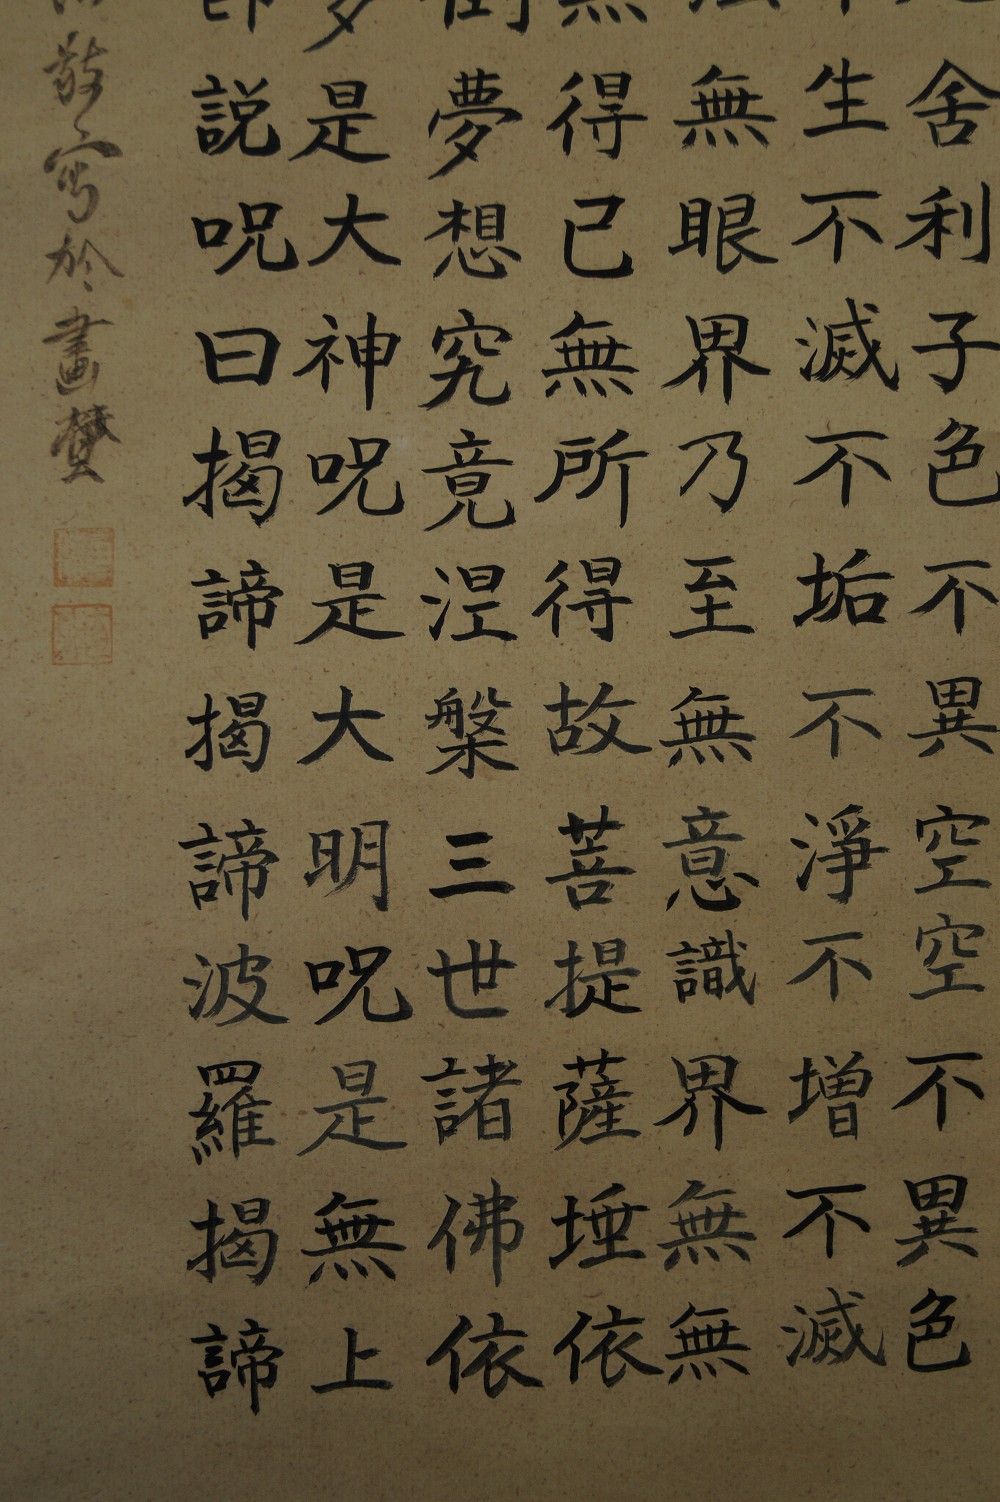 舍利子色不異空空不異色
生不滅不垢不淨不增不滅
無眼界乃至無意識界無無
得已無所得故菩提薩埵依
夢想究竟涅槃三世諸佛依
是大神呪是大明呪是無上
説呪曰揭諦揭諦波羅揭諦
敬寫於畫